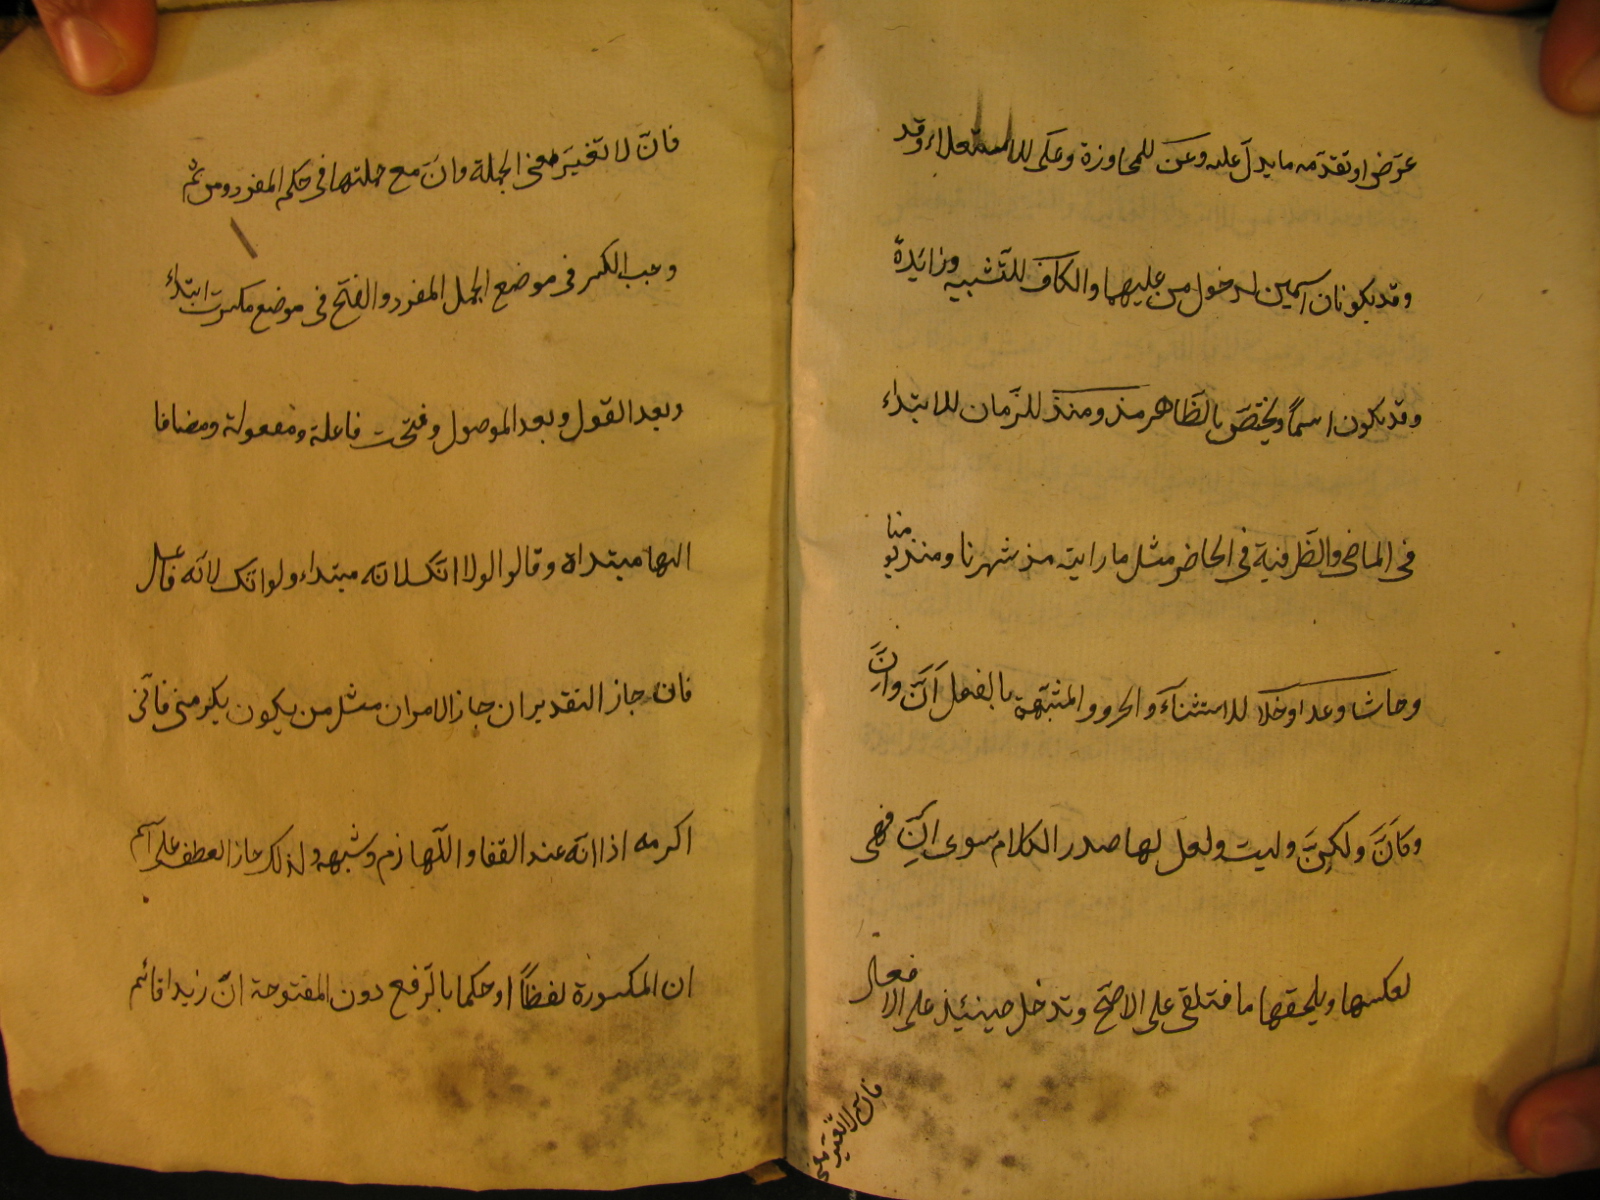 عوّض او تقدّمه ما يدلّ عليه وعن للمجاوزة وعلى للاستعلاء وقد
وقد يكونان اسمين لدخول من عليهما والكاف للتّشبيه وزائدة
وقد يكون اسماً ويختصّ بالظّاهر مذ ومنذ للزّمان للابتداء
فى الماضى والظّرفية فى الحاضر مثل ما رايته مذ شهرنا ومنذ يومنا
وحاشا وعدا وخلا للاستثناء والحروف المشبّهة بالفعل انّ وانّ
وكانّ ولكنّ وليت ولعل لها صدر الكلام سوى انّ فهى
لعكسها ويلحقها ما فتلغى على الاصحّ وتدخل حينئيذ على الافعال
فانّ لا تغيّر معنى
فانّ لا تغيّر معنى الجملة وانّ مع جملتها فى حكم المفرد ومن ثمّ
وجب الكسر فى موضع الجمل المفرد والفتح فى موضع مكسرت ابتداء
وبعد القول وبعد الموصول وفتحت فاعلة ومفعولة ومضافا
اليها مبتداة وقالوا لولا انّك لانّه مبتداء ولو انّك لانّه فاعل
فان جاز التقديران جاز الامران مثل من يكون يكرمنى فانّى
اكرمه اذا انّه عند القفا واللّهازم وشبهه ولذلك جاز العطف على اسم
ان المكسورة لفظاً او حكما بالرّفع دون المفتوحة انّ زيدا قائم